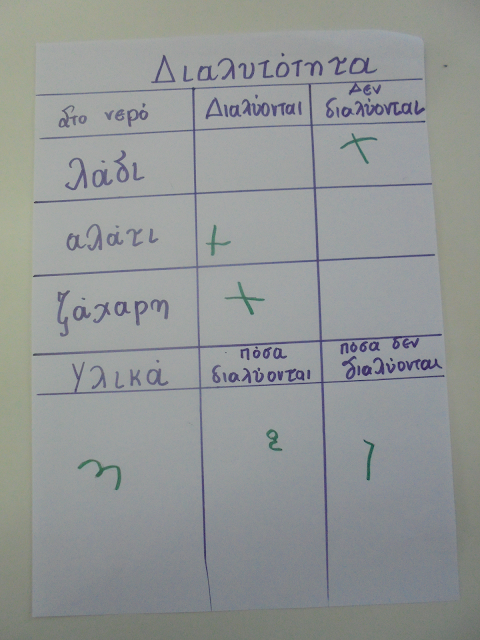 Διαλυτότητα
Στο νερό Διαλύονται Δεν διαλύονται
λάδι +
αλάτι +
ζάχαρη +
Υλικά πόσα διαλύονται πόσα δεν διαλύονται
3 2 1